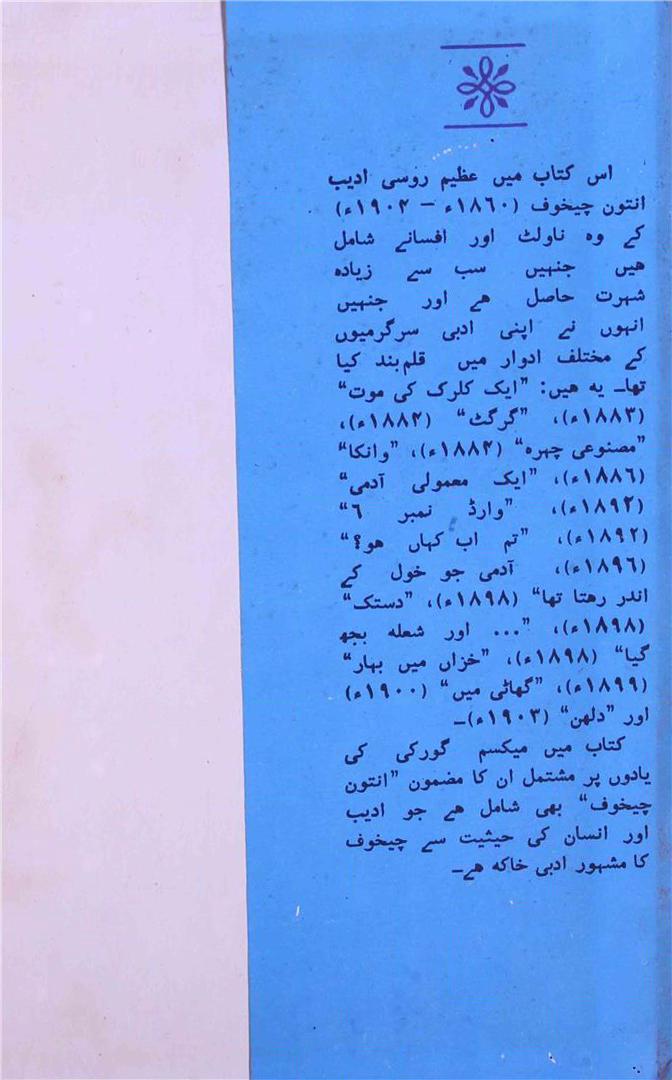 اس کتاب میں عظیم روسی ادیب
انتون چیخوف (۱۸٦۰ء – ۱۹۰۴ء)
کے وہ ناولٹ اور افسانے شامل
هیں جنہیں سب سے زیادہ
شہرت حاصل هے اور جنہیں
انہوں نے اپنی ادبی سرگرمیوں
کے مختلف ادوار میں قلم‌بند کیا
تھا۔ یہ هیں: ”ایک کلرک کی موت“
(۱۸۸۳ء)، ”گرگٹ“ (۱۸۸۴ء)،
”مصنوعی چہرہ“ (۱۸۸۴ء)، ”وانکا“
(۱۸۸٦ء)، ”ایک معمولی آدمی“
(۱۸۹۲ء)، ”وارڈ نمبر ٦“
(۱۸۹۲ء)، ”تم اب کہاں هو؟“
(۱۸۹٦ء)، آدمی جو خول کے
اندر رهتا تھا“ (۱۸۹۸ء)، ”دستک“
(۱۸۹۸ء)، ”... اور شعلہ بجھ
گیا“ (۱۸۹۸ء)، ”خزاں میں بہار“
(۱۸۹۹ء)، ”گھاٹی میں“ (۱۹۰۰ء)
اور ”دلھن“ (۱۹۰۳ء)۔
کتاب میں میکسم گورکی کی
یادوں پر مشتمل ان کا مضمون ”انتون
چیخوف“ بھی شامل هے جو ادیب
اور انسان کی حیثیت سے چیخوف
کا مشہور ادبی خاکہ هے۔